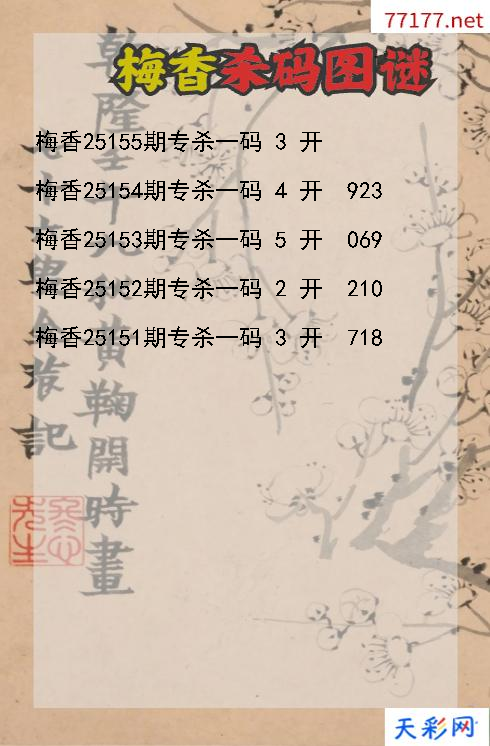 77177.net
梅香杀码图谜
梅香25155期专杀一码 3 开
梅香25154期专杀一码 4 开 923
梅香25153期专杀一码 5 开 069
梅香25152期专杀一码 2 开 210
梅香25151期专杀一码 3 开 718
鞠開時畫
記
天彩网